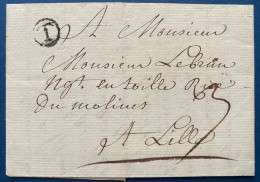 I
A Monsieur
Monsieur Lebrun
Ngt. en toille Rüe
Du molines
A Lille
3